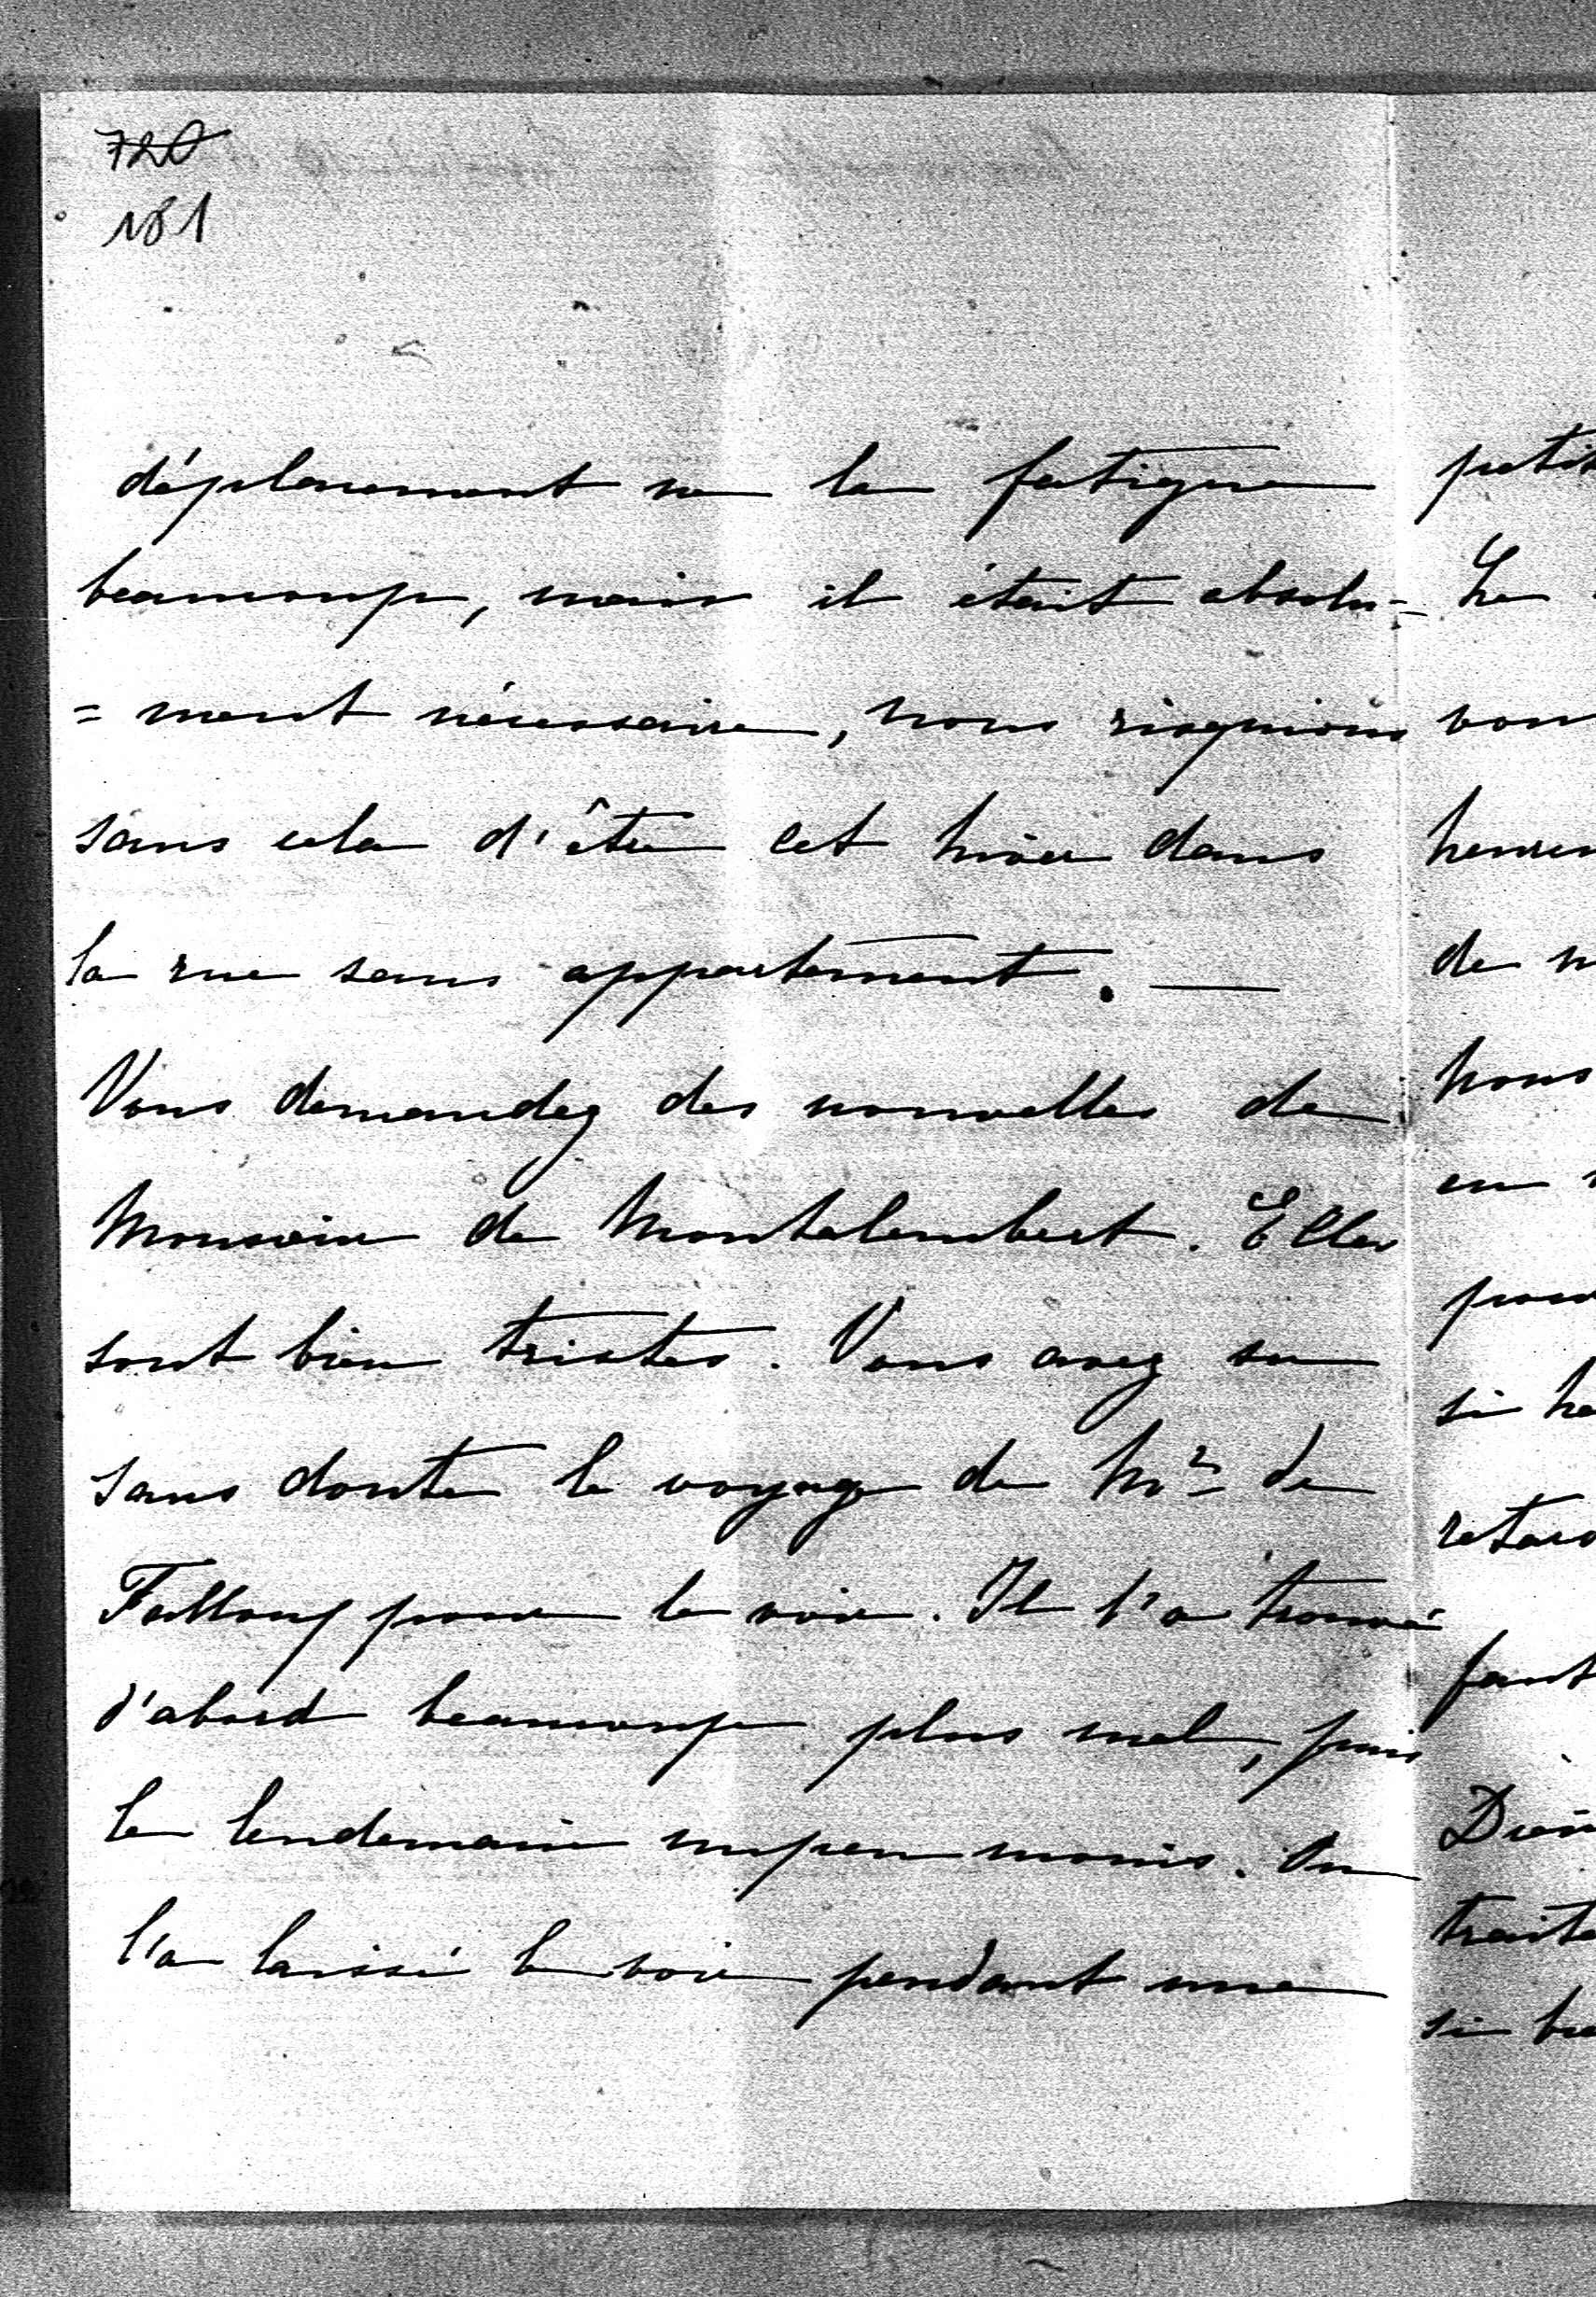 720
181
déplacement ne la fatigue
beaucoup, mais il était absolu=
=ment nécessaire, nous risquions
sans cela d'être cet hiver dans
la rue sans appartement. —
Vous demandez des nouvelles de
Monsieur de Montalembert. Elles
sont bien tristes. Vous avez su
sans doute le voyage de Mr de
Falloux pour le voir. Il l'a trouvé
d'abord beaucoup plus mal, puis
le lendemain un peu moins. On
l'a laissé le voir pendant une
petit
Le
vou
heureu
de m
nous
en
pour
si he
retard
faut
Dieu
traite
si bea